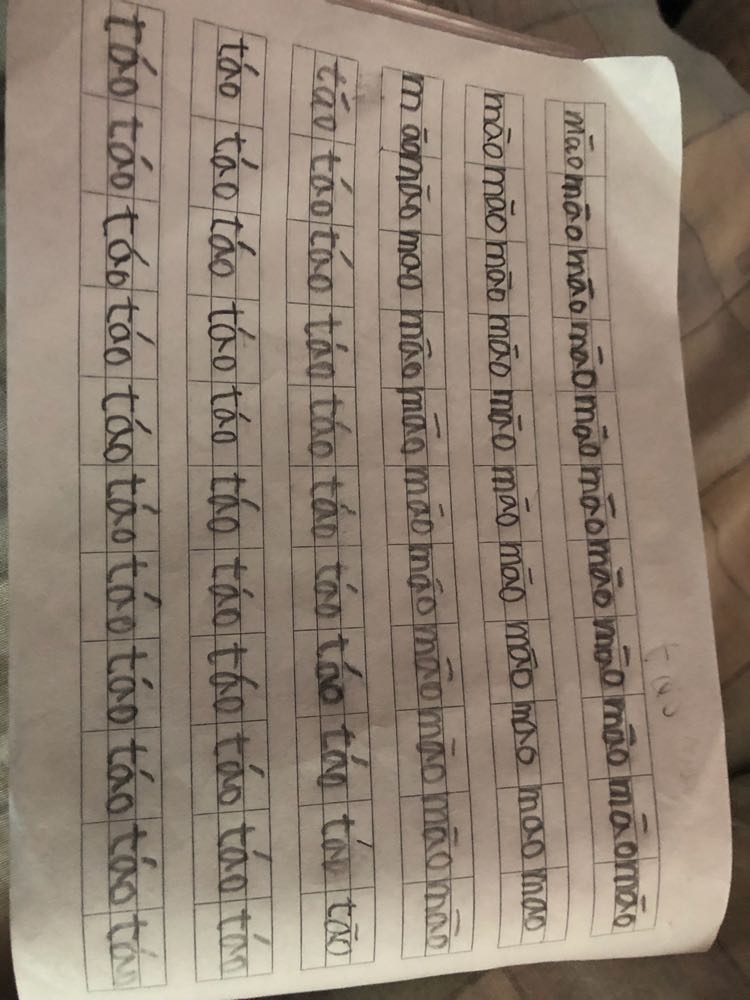 māo māo māo māo māo māo māo māo māo māo māo
māo māo māo māo māo māo māo māo mao mao mao
māo māo mao māo māo māo māo māo māo māo māo
táo táo táo táo táo táo táo táo táo táo tāo
táo táo táo táo táo táo táo táo táo táo táo
táo táo táo táo táo táo táo táo táo táo táo